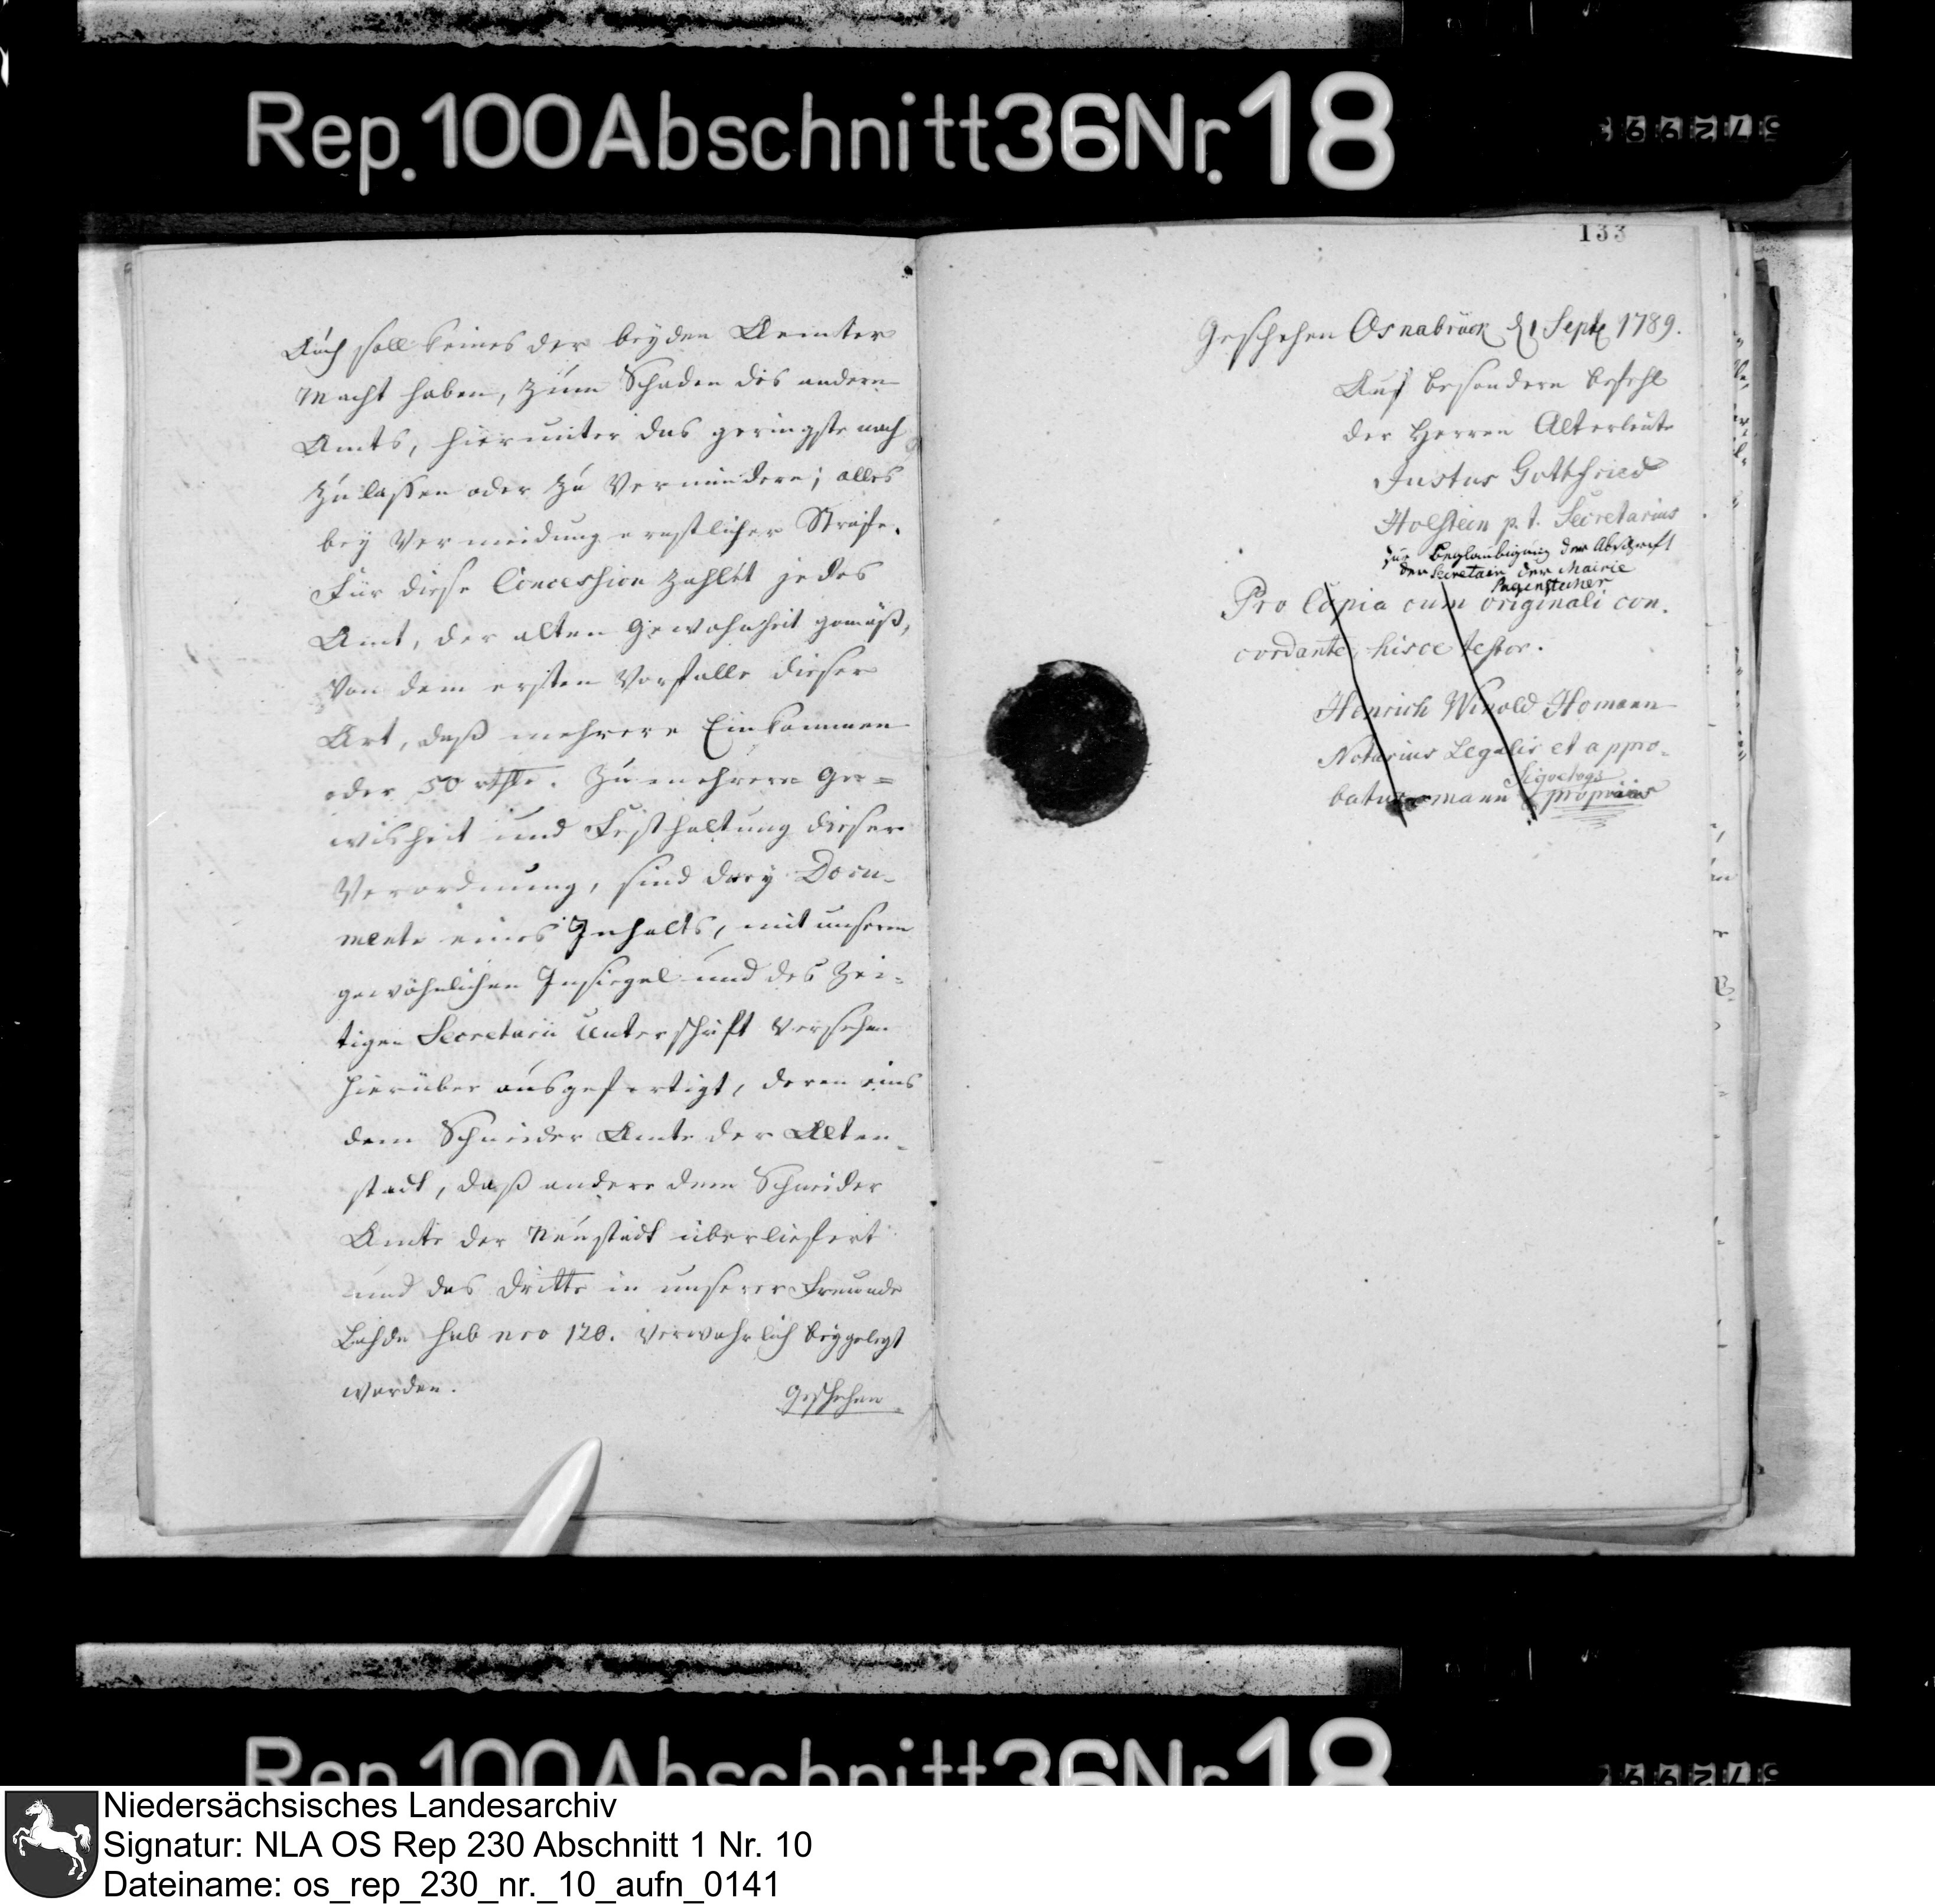 Rep. 100 Abschnitt 36 Nr. 18
Auch soll keines der beyden Aemter
Macht haben, zum Schaden des andern
Amts, hierunter das geringste nach
zu lassen oder zu vermindern; alles
bey Vermeidung ernstlicher Strafe.
Für diese Concession zahlet jedes
Amt, der alten Gewohnheit gemäß,
von dem ersten Vorfalle dieser
Art, daß mehrere Einkommen
oder 50 rthlr. Zu mehrern Ge=
wisheit und Festhaltung dieser
Verordnung, sind drey Docu-
mente eines Inhalts, mit unserm
gewöhnlichen Insiegel und des Zei-
tigen Secretarii Unterschrift versehen
hierüber ausgefertigt, deren eins
dem Schneider Amte der Alten-
stadt, daß andere dem Schneider
Amte der Neustadt überliefert
und das dritte in unserer Freunde
Lahde sub nro 120. verwahrlich beygelegt
worden.
Geschehen
133
Geschehen Osnabrück d 1 Sept 1789.
Auf besondern Befehl
der Herren Alterleute
Justus Gottfried
Holstein p. t. Secretarius
Zur Beglaubigung der Abschrift
der Secretair der Mairie
Pagenstecher
Pro Copia cum originali con.
cordante hisce testor.
Henrich Winold Homann
Notarius Legalis et appro-
batus mann propriis
Rep. 100 Abschnitt 36 Nr. 18
Niedersächsisches Landesarchiv
Signatur: NLA OS Rep 230 Abschnitt 1 Nr. 10
Dateiname: os_rep_230_nr._10_aufn_0141